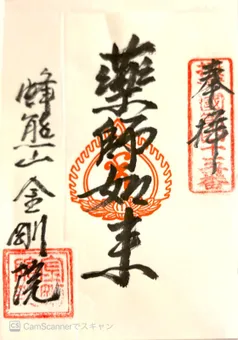 奉拝
薬師如来
峰熊山金剛院
CamScannerでスキャン